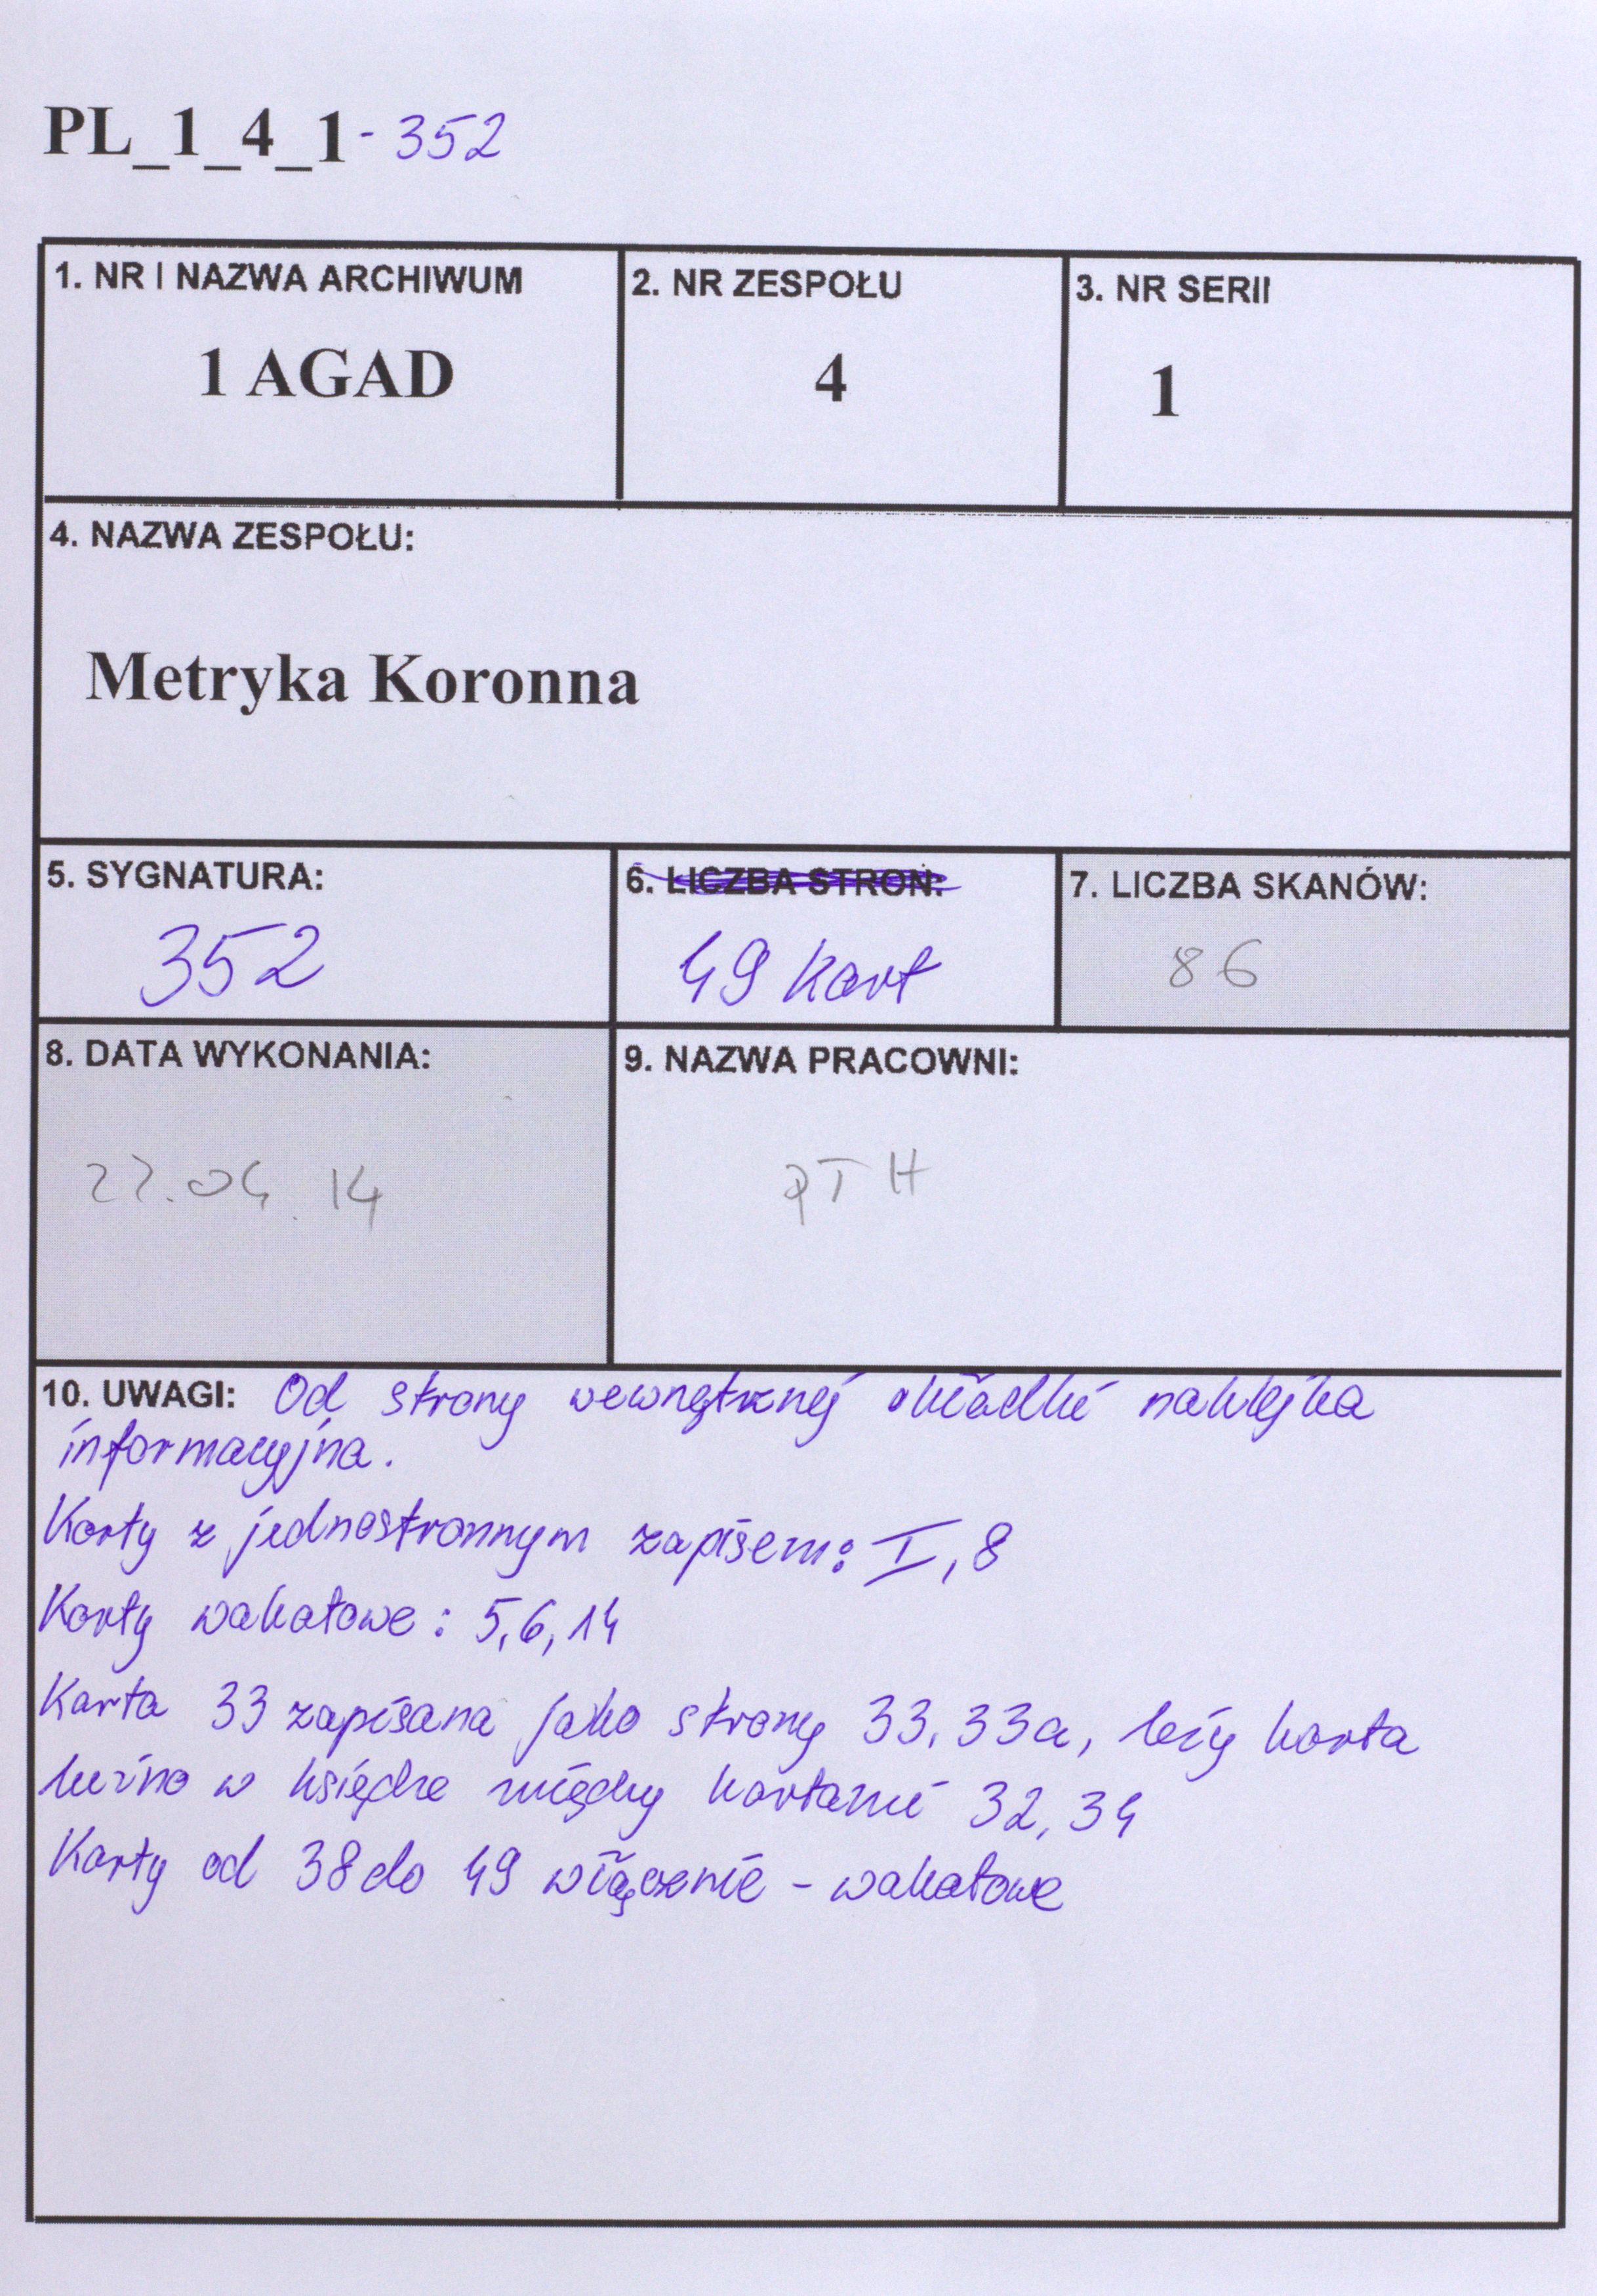 PL_1_4_1-352
1. NR I NAZWA ARCHIWUM
1 AGAD
2. NR ZESPOŁU
4
3. NR SERII
1
4. NAZWA ZESPOŁU:
Metryka Koronna
5. SYGNATURA:
352
6. LICZBA STRON:
49 kart
7. LICZBA SKANÓW:
86
8. DATA WYKONANIA:
22.04.14
9. NAZWA PRACOWNI:
PTH
10. UWAGI: Od strony wewnętrznej okładki naklejka
informacyjna.
Karty z jednostronnym zapisem: I, 8
Karty wakatowe: 5, 6, 14
Karta 33 zapisana jako strony 33, 33a, leży karta
luźno w księdze między kartami 32, 34
Karty od 38 do 49 włącznie - wakatowe